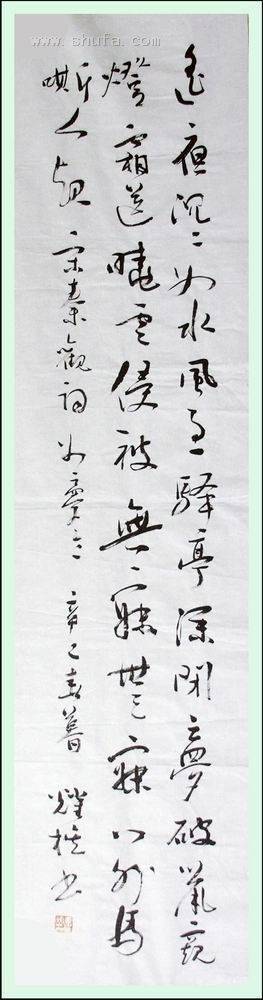 www.shufa.com
遙夜沉沉如水風緊驛亭深閉夢破鼠窺
燈霜送曉寒侵被無寐無寐門外馬
嘶人起 宋秦觀詞如夢令 辛巳春暮 耀 書